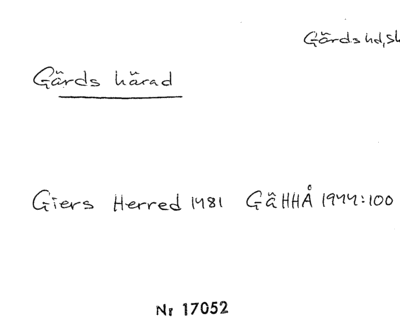 Gärds hd, Sk
Gärds härad
Giers Herred 1481 GäHHÅ 1944:100
Nr 17052